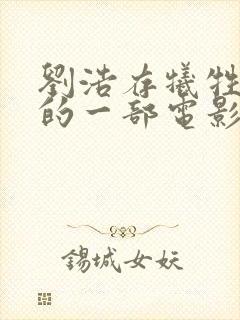 劉浩存犧牲
的一部電影
錫城女妖